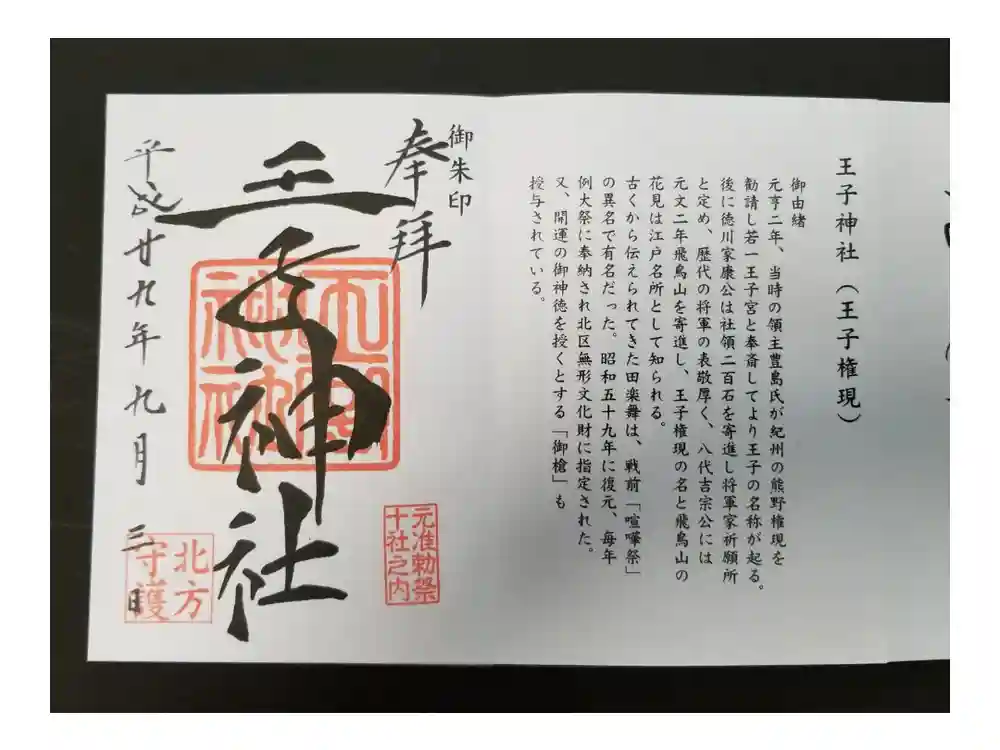 王子神社（王子権現）
御由緒
元亨二年、当時の領主豊島氏が紀州の熊野権現を
勧請し若一王子宮と奉斎してより王子の名称が起る。
後に徳川家康公は社領二百石を寄進し将軍家祈願所
と定め、歴代の将軍の表敬厚く、八代吉宗公には
元文二年飛鳥山を寄進し、王子権現の名と飛鳥山の
花見は江戸名所として知られる。
古くから伝えられてきた田楽舞は、戦前「喧嘩祭」
の異名で有名だった。昭和五十九年に復元、毎年
例大祭に奉納され北区無形文化財に指定された。
又、開運の御神徳を授くとする「御槍」も
授与されている。
御朱印
奉拝
元准勅祭
十社之内
王子神社
北方
守護
平成廿九年九月三日